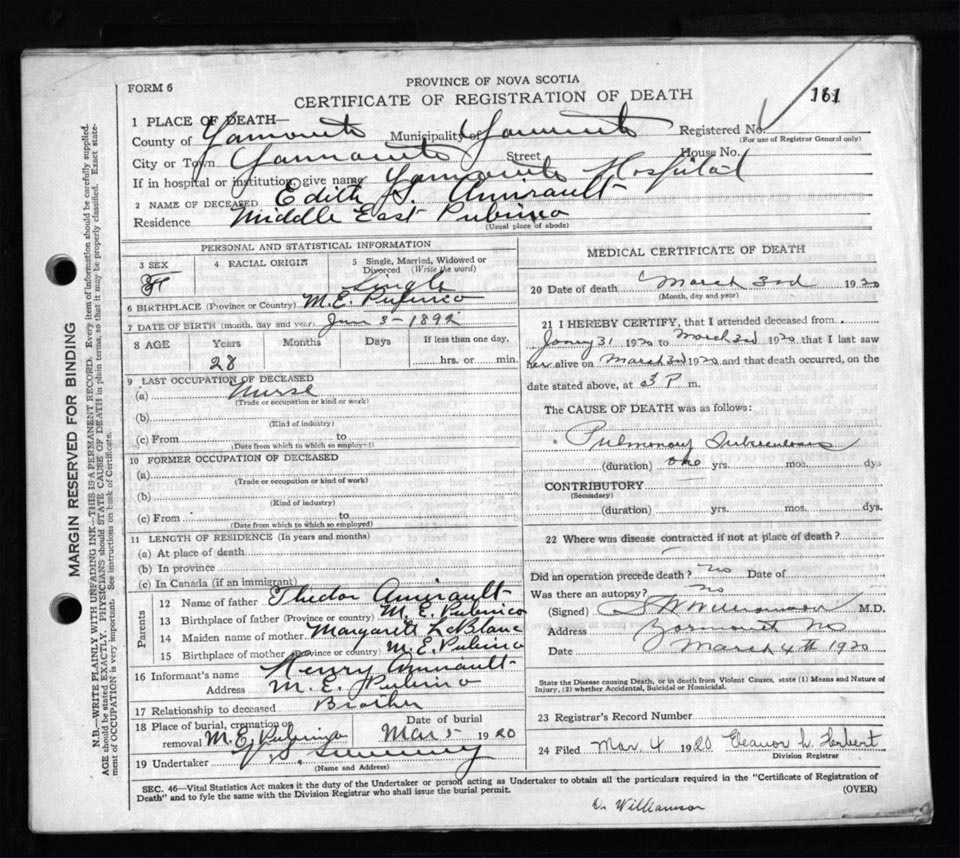 FORM 6
PROVINCE OF NOVA SCOTIA
CERTIFICATE OF REGISTRATION OF DEATH
161
1 PLACE OF DEATH—
County of Yarmouth Municipality of Yarmouth Registered No.
(For use of Registrar General only)
City or Town Yarmouth Street House No.
If in hospital or institution, give name Yarmouth Hospital
2 NAME OF DECEASED Edith Amirault
Residence Middle East Pubnico
(Usual place of abode)
PERSONAL AND STATISTICAL INFORMATION
3 SEX
F
4 RACIAL ORIGIN
5 Single, Married, Widowed or Divorced (Write the word)
Single
6 BIRTHPLACE (Province or Country) M.E. Pubnico
7 DATE OF BIRTH (month, day and year) 3-1892
8 AGE Years Months Days If less than one day,
28 hrs. or min.
9 LAST OCCUPATION OF DECEASED
(a) Nurse
(Trade or occupation or kind or work)
(b)
(Kind of industry)
(c) From to
(Date from which to which so employed)
10 FORMER OCCUPATION OF DECEASED
(a)
(Trade or occupation or kind of work)
(b)
(Kind of industry)
(c) From to
(Date from which to which so employed)
11 LENGTH OF RESIDENCE (In years and months)
(a) At place of death
(b) In province
(c) In Canada (if an immigrant)
Parents
12 Name of father Thedor Amirault
13 Birthplace of father (Province or country) M.E. Pubnico
14 Maiden name of mother Margaret LeBlanc
15 Birthplace of mother (Province or country) M.E. Pubnico
16 Informant's name Henry Amirault
Address M.E. Pubnico
17 Relationship to deceased Brother
18 Place of burial, cremation or removal M.E. Pubnico
Date of burial
Mar 5 1920
19 Undertaker Sweeney
(Name and Address)
MEDICAL CERTIFICATE OF DEATH
20 Date of death March 3rd 1920
(Month, day and year)
21 I HEREBY CERTIFY, that I attended deceased from
31 1920 to March 3rd 1920 that I last saw
her alive on March 3rd 1920 and that death occurred, on the
date stated above, at 3 P m.
The CAUSE OF DEATH was as follows:
Pulmonary Tuberculosis
(duration) one yrs. mos. dys
CONTRIBUTORY
(Secondary)
(duration) yrs. mos. dys.
22 Where was disease contracted if not at place of death?
Did an operation precede death? no Date of
Was there an autopsy? no
(Signed) Williamson M.D.
Address Yarmouth NS
Date March 4th 1920
State the Disease causing Death, or in death from Violent Causes, state (1) Means and Nature of
Injury, (2) whether Accidental, Suicidal or Homicidal.
23 Registrar's Record Number
24 Filed Mar. 4 1920 Eleanor L. Herbert
Division Registrar
SEC. 46—Vital Statistics Act makes it the duty of the Undertaker or person acting as Undertaker to obtain all the particulars required in the "Certificate of Registration of
Death" and to fyle the same with the Division Registrar who shall issue the burial permit.
(OVER)
Dr Williamson
MARGIN RESERVED FOR BINDING
N.B.—WRITE PLAINLY WITH UNFADING INK—THIS IS A PERMANENT RECORD. Every item of information should be carefully supplied.
AGE should be stated EXACTLY. PHYSICIANS should STATE CAUSE OF DEATH in plain terms, so that it may be properly classified. Exact statement of OCCUPATION is very important. See instructions on back of Certificate.